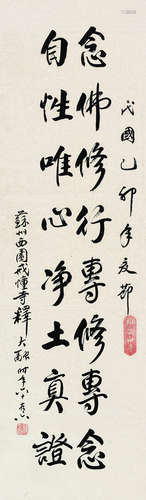 民國乙卯年夏節
念佛修行專修專念
自性唯心净土真證
蘇州西園戒幢寺釋大融時年六十六